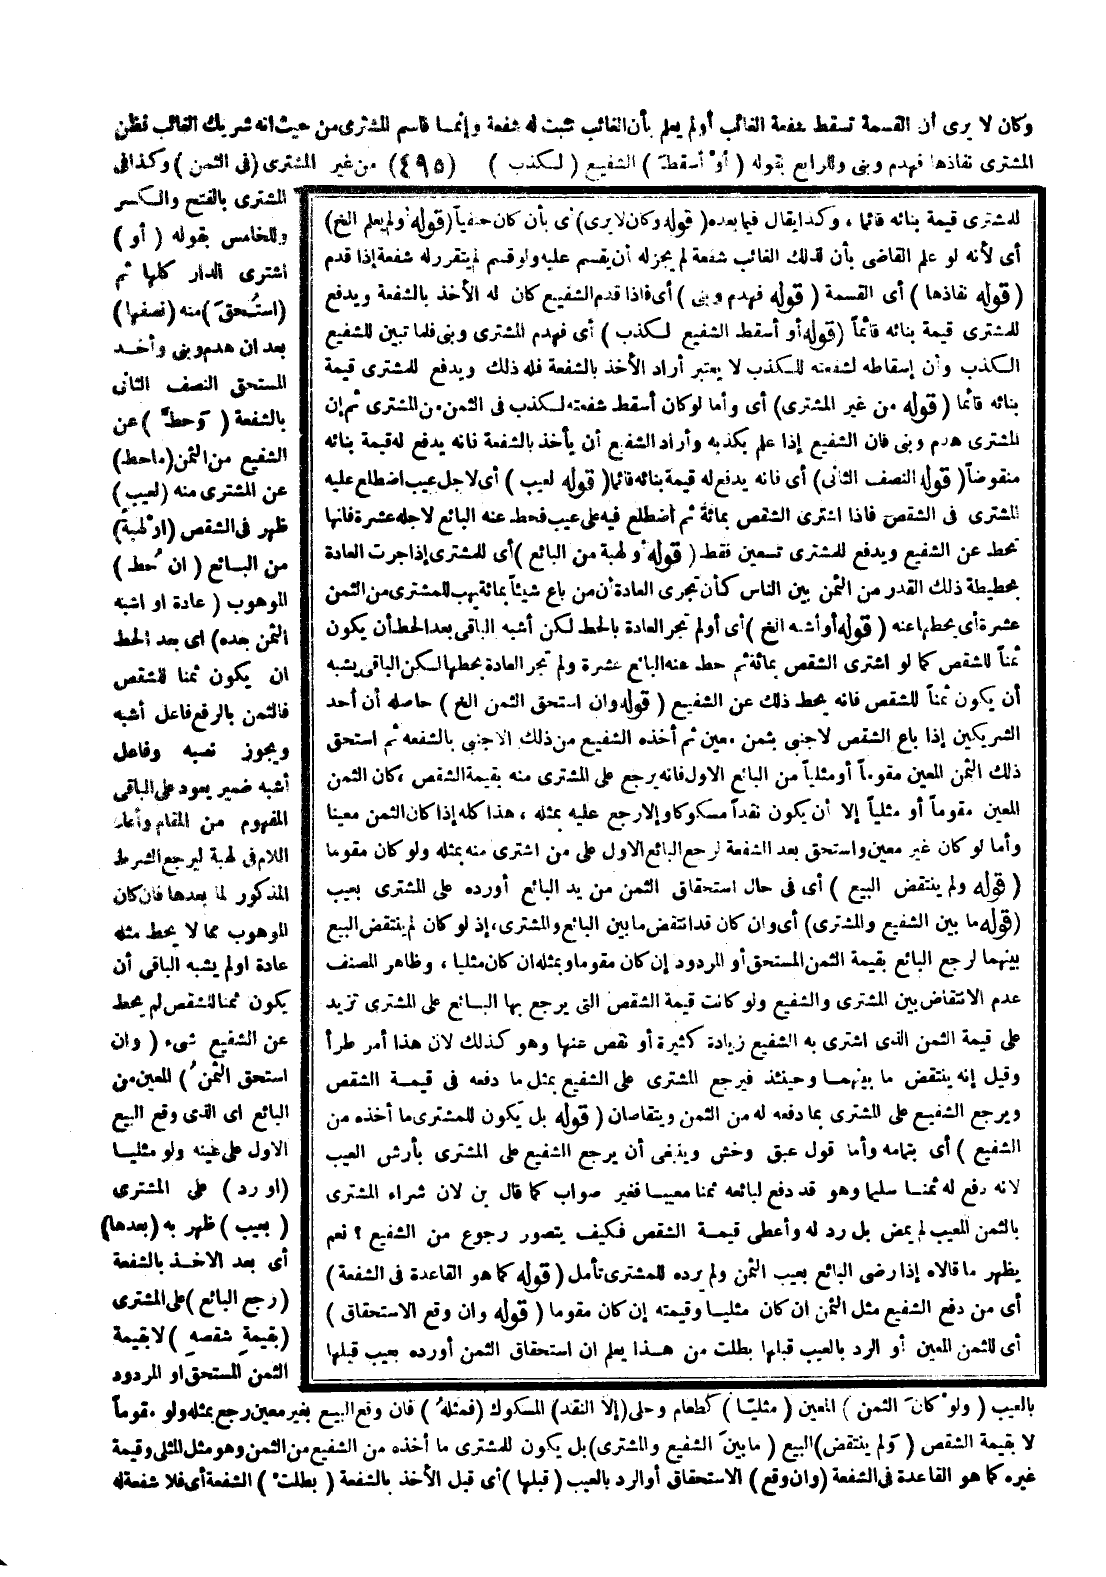 وكان لا يرى أن القسمة تسقط شفعة الغائب أو لم يعلم بأن الغائب ثبت له شفعة وإنما قاسم المشترى من حيث انه شريك الغائب فظن
المشترى نفاذها فهدم وبنى وللرابع بقوله ( أوْ أسقطَ ) الشفيع ( لكذب ) (٤٩٥) من غير المشترى (فى الثمن ) وكذا فى
المشترى بالفتح والكسر
وللخامس بقوله ( أو )
اشترى الدار كلها ثم
(استُحقَ )منه (نصفها)
بعد ان هدم وبنى وأخذ
المستحق النصف الثانى
بالشفعة ( وَحطَّ )عن
الشفيع من الثمن(ماحط)
عن المشترى منه (لعيبٍ)
ظهر فى الشقص (اوْلهبةٍ)
من البائع ( ان حُط )
الموهوب ( عادة او اشبه
الثمن بعده) اى بعد الحط
ان يكون ثمنا للشقص
فالثمن بالرفع فاعل أشبه
ويجوز نصبه وفاعل
أشبه ضمير يعود على الباقى
المفهوم من المقام وأعاد
اللام فى لهبة ليرجع الشرط
المذكور لما بعدها فان كان
الموهوب مما لا يحط مثله
عادة اولم يشبه الباقى أن
يكون ثمنا للشقص لم يحط
عن الشفيع شىء ( وان
استحق الثمنُ ) المعين من
البائع اى الذى وقع البيع
الاول على عينه ولو مثليا
(او رد ) على المشترى
( بعيب ) ظهر به (بعدها)
أى بعد الاخذ بالشفعة
(رجع البائع )على المشترى
(بقيمةِ شقصهِ )لا بقيمة
الثمن المستحق او المردود
بالعيب ( ولوْ كانَ الثمن ) المعين ( مثليّا ) كطعام وحلى(إلا النقد) المسكوك (فمثلهُ ) فان وقع البيع بغير معين رجع بمثله ولو مقوماً
لا بقيمة الشقص ( وَلم ينتقض)البيع ( ما بينَ الشفيع والمشترى)بل يكون للمشترى ما أخذه من الشفيع من الثمن وهو مثل المثلى وقيمة
غيره كما هو القاعدة فى الشفعة (وان وقع ) الاستحقاق أو الرد بالعيب ( قبلها )أى قبل الأخذ بالشفعة ( بطلتْ ) الشفعة أى فلا شفعة له
للمشترى قيمة بنائه قائما ، وكذا يقال فيما بعده( قوله وكان لا يرى) أى بأن كان حنفياً (قوله أو لم يعلم الخ)
أى لأنه لو علم القاضى بأن لذلك الغائب شفعة لم يجز له أن يقسم عليه ولو قسم لم يتقرر له شفعة إذا قدم
( قوله نفاذها ) أى القسمة ( قوله فهدم وبنى ) أى فاذا قدم الشفيع كان له الأخذ بالشفعة ويدفع
للمشترى قيمة بنائه قائماً (قوله أو أسقط الشفيع لكذب ) أى فهدم المشترى وبنى فلما تبين للشفيع
الكذب وأن إسقاطه لشفعته للكذب لا يعتبر أراد الأخذ بالشفعة فله ذلك ويدفع للمشترى قيمة
بنائه قائما ( قوله من غير المشترى) أى وأما لو كان أسقط شفعته لكذب فى الثمن من المشترى ثم إن
المشترى هدم وبنى فان الشفيع إذا علم بكذبه وأراد الشفيع أن يأخذ بالشفعة فانه يدفع له قيمة بنائه
منقوضاً( قوله النصف الثانى) أى فانه يدفع له قيمة بنائه قائما( قوله لعيب ) أى لاجل عيب اضطلع عليه
المشترى فى الشقص فاذا اشترى الشقص بمائة ثم أضطلع فيه على عيب فحط عنه البائع لاجله عشرة فانها
تحط عن الشفيع ويدفع للمشترى تسعين فقط ( قوله أو لهبة من البائع ) أى للمشترى إذا جرت العادة
بحطيطة ذلك القدر من الثمن بين الناس كأن تجرى العادة أن من باع شيئاً بمائة يهب للمشترى من الثمن
عشرة أى يحطها عنه ( قوله أو أشبه الخ ) أى أو لم تجر العادة بالحط لكن أشبه الباقى بعد الحط أن يكون
ثمناً للشقص كما لو اشترى الشقص بمائة ثم حط عنه البائع عشرة ولم تجر العادة بحطها لكن الباقى يشبه
أن يكون ثمناً للشقص فانه يحط ذلك عن الشفيع ( قوله وان استحق الثمن الخ ) حاصله أن أحد
الشريكين إذا باع الشقص لاجنبى بثمن معين ثم أخذه الشفيع من ذلك الاجنبى بالشفعه ثم استحق
ذلك الثمن المعين مقوماً أو مثلياً من البائع الاول فانه يرجع على المشترى منه بقيمة الشقص ، كان الثمن
المعين مقوماً أو مثلياً إلا أن يكون نقداً مسكوكا وإلا رجع عليه بمثله ، هذا كله إذا كان الثمن معينا
وأما لو كان غير معين واستحق بعد الشفعة لرجع البائع الاول على من اشترى منه بمثله ولو كان مقوما
( قوله ولم ينتقض البيع ) أى فى حال استحقاق الثمن من يد البائع أو رده على المشترى بعيب
(قوله ما بين الشفيع والمشترى) أى وان كان قد انتقض ما بين البائع والمشترى، إذ لو كان لم ينتقض البيع
بينهما لرجع البائع بقيمة الثمن المستحق أو المردود إن كان مقوما وبمثله ان كان مثليا ، وظاهر المصنف
عدم الانتقاض بين المشترى والشفيع ولو كانت قيمة الشقص التى يرجع بها البائع على المشترى تزيد
على قيمة الثمن الذى اشترى به الشفيع زيادة كثيرة أو نقص عنها وهو كذلك لان هذا أمر طرأ
وقيل إنه ينتقض ما بينهما وحينئذ فيرجع المشترى على الشفيع بمثل ما دفعه فى قيمة الشقص
ويرجع الشفيع على المشترى بما دفعه له من الثمن ويتقاصان ( قوله بل يكون للمشترى ما أخذه من
الشفيع ) أى بتمامه وأما قول عبق وخش وينبغى أن يرجع الشفيع على المشترى بأرش العيب
لانه دفع له ثمنا سليما وهو قد دفع لبائعه ثمنا معيبا فغير صواب كما قال بن لان شراء المشترى
بالثمن المعيب لم يمض بل رد له وأعطى قيمة الشقص فكيف يتصور رجوع من الشفيع ؟ نعم
يظهر ما قالاه إذا رضى البائع بعيب الثمن ولم يرده للمشترى تأمل ( قوله كما هو القاعدة فى الشفعة )
أى من دفع الشفيع مثل الثمن ان كان مثليا وقيمته إن كان مقوما ( قوله وان وقع الاستحقاق )
أى للثمن المعين أو الرد بالعيب قبلها بطلت من هذا يعلم ان استحقاق الثمن أو رده بعيب قبلها